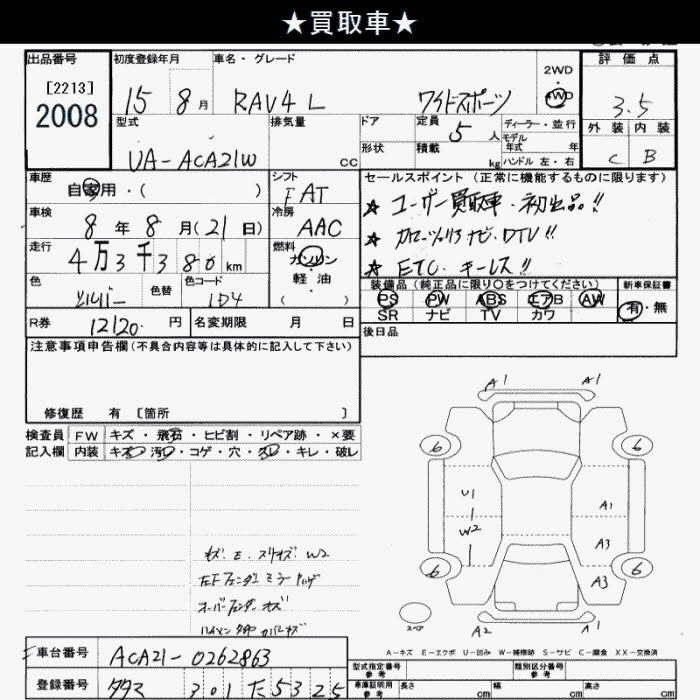 ★買取車★
出品番号 初度登録年月 車名・グレード 評価点
[2213]
2008
15 8月 RAV4 L ワイドスポーツ 2WD 4WD 3.5
型式 排気量 ドア 定員 5人 ディーラー・並行 外装 内装
UA-ACA21W cc 形状 積載 kg モデル年式 年 ハンドル 左・右 C B
車歴 自家用・( ) シフト FAT
セールスポイント(正常に機能するものに限ります)
★ ユーザー買取車・初出品!!
車検 8年 8月(21日) 冷房 AAC
★ ナビ・DTV!!
走行 4万3千380km 燃料 ガソリン 軽油 ( )
★ ETC キーレス!!
色 シルバー 色替 色コード 1D4
装備品(純正品に限り○をつけてください) 新車保証書
PS PW ABS エアB AW 有・無
SR ナビ TV カワ
R券 12120円 名変期限 月 日 後日品
注意事項申告欄(不具合内容等は具体的に記入して下さい)
修復歴 有 [箇所 ]
検査員 FW キズ・飛石・ヒビ割・リペア跡・×要
記入欄 内装 キズ・汚レ・コゲ・穴・スレ・キレ・破レ
A1 A1
6 6
U1 A1
W2 A3
6 A3 6
スペ A2 A1
キズ.E.スリキズ.W2
左Fフェンダーミラーハゲ
オーバーフェンダーキズ
カバーキズ
A-キズ E-エクボ U-凹み W-補修跡 S-サビ C-腐食 XX-交換済
車台番号 ACA21-0262863
型式指定番号 参考 類別区分番号 参考
登録番号 301 た 5325
車庫証明用 参考 長さ cm 幅 cm 高さ cm